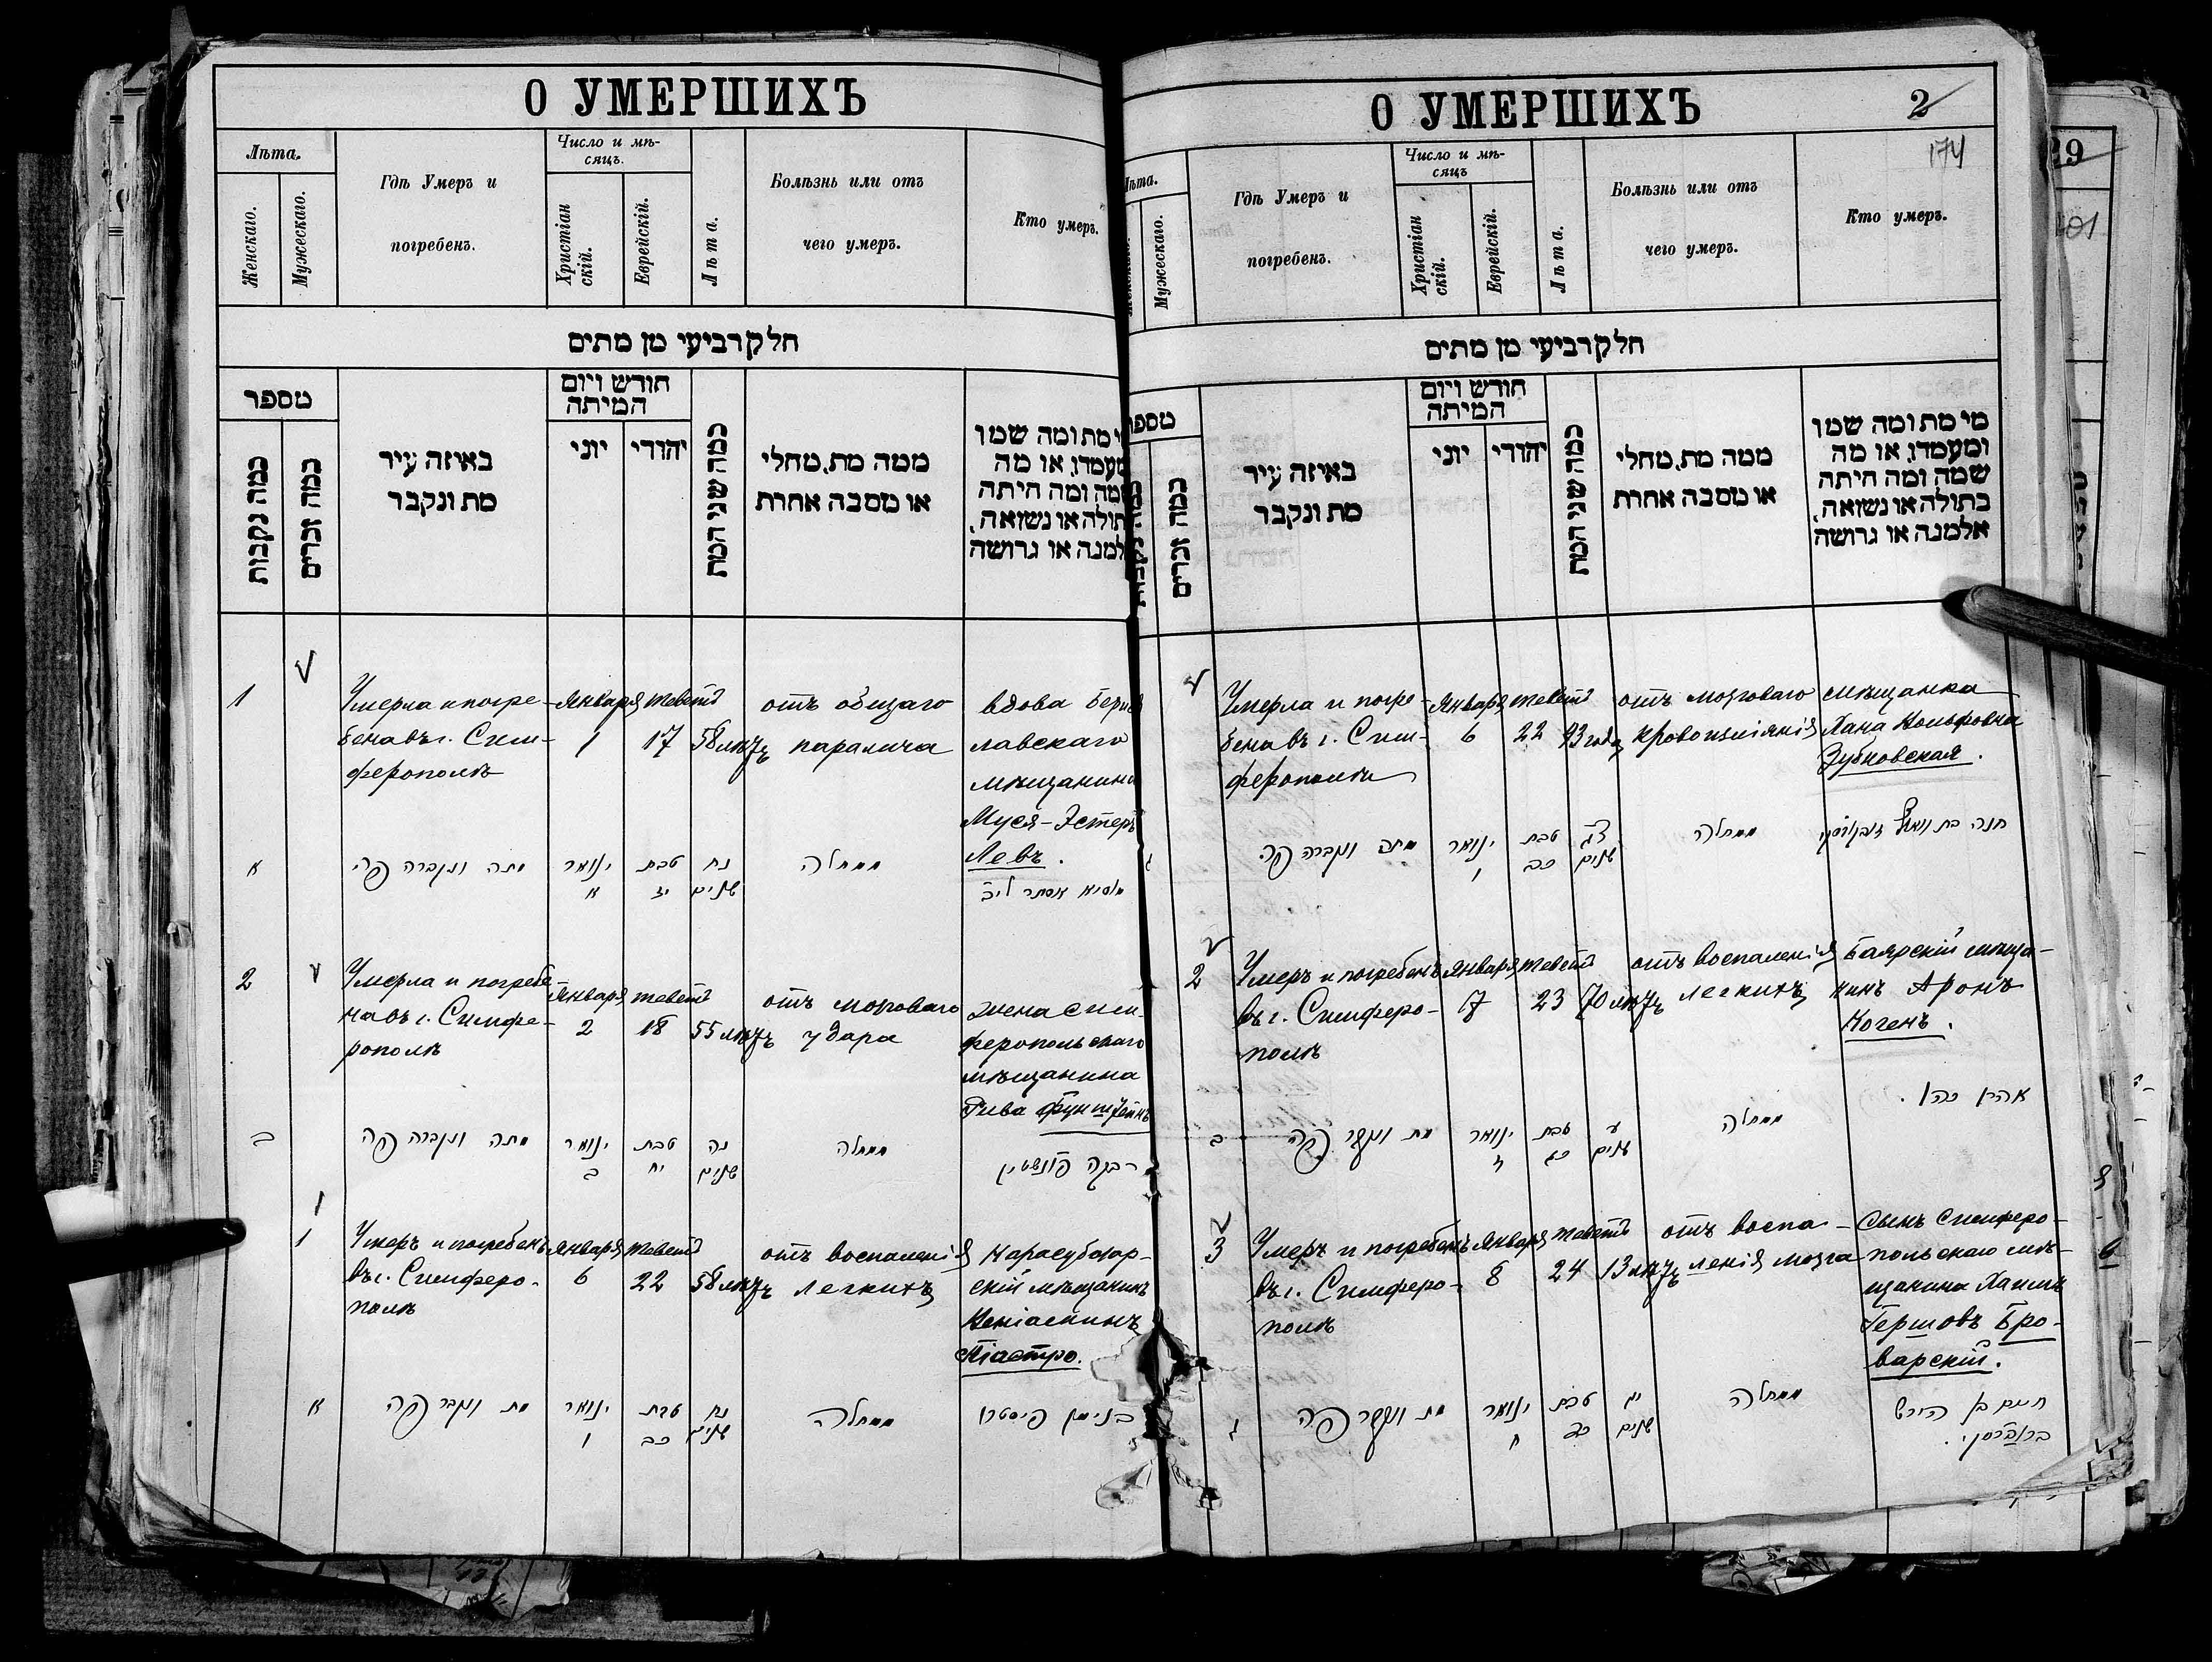 О УМЕРШИХЪ
Лѣта.
Женскаго.
Мужескаго.
Гдѣ Умеръ и
погребенъ.
Число и мѣ-
сяцъ.
Христіан
скій.
Еврейскій.
Лѣта.
Болѣзнь или отъ
чего умеръ.
Кто умеръ.
חלק רביעי מן מתים
מספר
כמה נקבות
כמה זכרים
באיזה עיר
מת ונקבר
חודש ויום
המיתה
יוני
יהודי
כמה שני המת
ממה מת, מחלי
או מסבה אחרת
מי מת ומה שמו
ומעמדו, או מה
שמה ומה היתה
בתולה או נשואה,
אלמנה או גרושה
1
Умерла и погре-
бена въ г. Сим-
ферополѣ
Января
1
Теветъ
17
58 лѣтъ
отъ общаго
паралича
вдова
лавскаго
мѣщанина
Муся-Эстеръ
Левъ.
א
מתה ונקברה פה
ינואר
א
טבת
יז
נח
שנים
ממחלה
מוסיא אסתר ליב
2
Умерла и погребе-
на въ г. Симфе-
рополѣ
Января
2
Теветъ
18
55 лѣтъ
отъ мозговаго
удара
жена сим-
феропольскаго
мѣщанина
Рива Фунштейнъ
ב
מתה ונקברה פה
ינואר
ב
טבת
יח
נה
שנים
ממחלה
רבקה פונשטין
1
1
Умеръ и погребенъ
въ г. Симферо-
полѣ
Января
6
Теветъ
22
58 лѣтъ
отъ воспаленія
легкихъ
Карасубазар-
скій мѣщанинъ
Веніаминъ
Піастро.
א
מת ונקבר פה
ינואר
ו
טבת
כב
נח
שנים
ממחלה
בנימן פיסטרו
О УМЕРШИХЪ
2
174
Мужескаго.
Гдѣ Умеръ и
погребенъ.
Число и мѣ-
сяцъ
Христіан
скій.
Еврейскій.
Лѣта.
Болѣзнь или отъ
чего умеръ.
Кто умеръ.
חלק רביעי מן מתים
מספר
כמה זכרים
באיזה עיר
מת ונקבר
חודש ויום
המיתה
יוני
יהודי
כמה שני המת
ממה מת, מחלי
או מסבה אחרת
מי מת ומה שמו
ומעמדו, או מה
שמה ומה היתה
בתולה או נשואה,
אלמנה או גרושה
Умерла и погре-
бена въ г. Сим-
ферополѣ
Января
6
Теветъ
22
93 года
отъ мозговаго
кровоизліянія
мѣщанка
Хана Вольфовна
Зубковская.
ג
מתה ונקברה פה
ינואר
ו
טבת
כב
צג
שנים
ממחלה
חנה בת וואלף
2
Умеръ и погребенъ
въ г. Симферо-
полѣ
Января
7
Теветъ
23
70 лѣтъ
отъ воспаленія
легкихъ
Боярскій мѣща-
нинъ Аронъ
Когенъ.
ב
מת ונקבר פה
ינואר
ז
טבת
כג
ע
שנים
ממחלה
אהרן כהן.
3
Умеръ и погребенъ
въ г. Симферо-
полѣ
Января
8
Теветъ
24
13 лѣтъ
отъ воспа-
ленія мозга
Сынъ симферо-
польскаго мѣ-
щанина Хаимъ
Гершовъ Бро-
варскій.
ג
מת ונקבר פה
ינואר
ח
טבת
כד
יג
שנים
ממחלה
חיים בן הירש
בראברסקי.
29